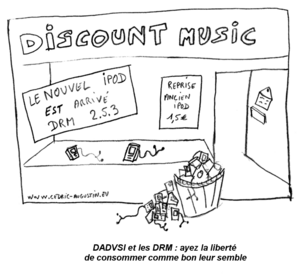 DISCOUNT MUSIC
LE NOUVEL IPOD
EST ARRIVÉ
DRM 2.5.3
REPRISE
ANCIEN
IPOD
1,5€
WWW.CEDRIC-AUGUSTIN.EU
DADVSI et les DRM : ayez la liberté
de consommer comme bon leur semble